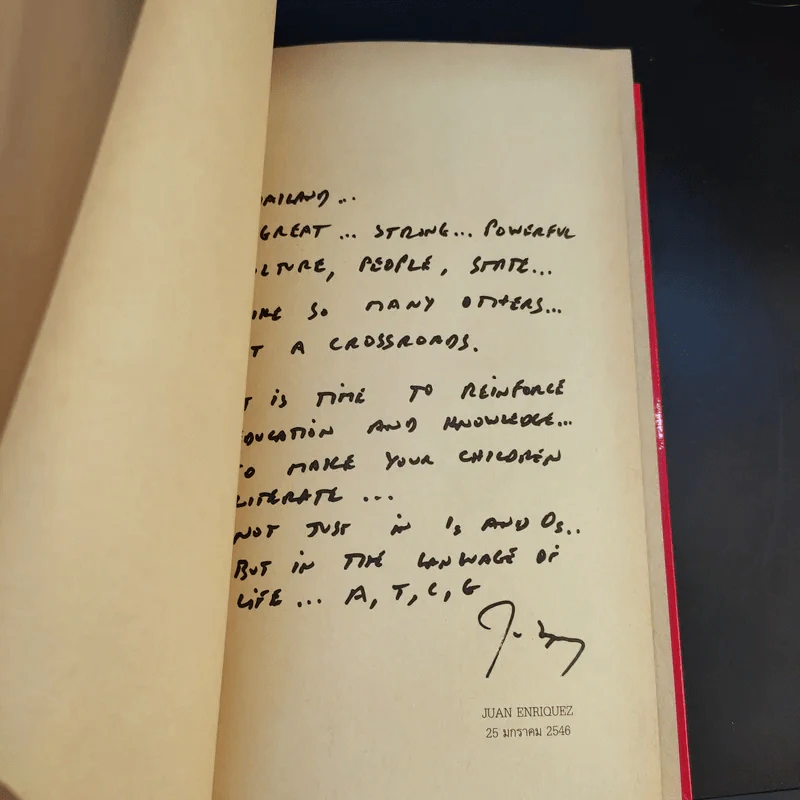 AILAND...
GREAT... STRONG... POWERFUL
LTURE, PEOPLE, STATE...
KE SO MANY OTHERS...
T A CROSSROADS.
T IS TIME TO REINFORCE
EDUCATION AND KNOWLEDGE...
TO MAKE YOUR CHILDREN
LITERATE...
NOT JUST IN 1s AND 0s..
BUT IN THE LANGUAGE OF
LIFE... A, T, C, G
JUAN ENRIQUEZ
25 มกราคม 2546